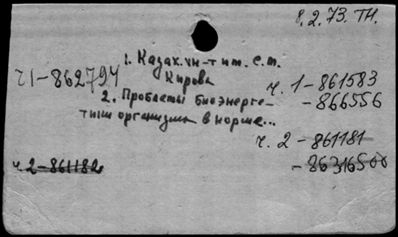 8.2.73. ТН.
1. Казах. ун-т им. С. М.
Кирова
Ч1-862794
ч. 1-861583
-866556
2. Проблемы биоэнерге-
тики организма в норме...
ч. 2-861181
ч.2-861182
-86316500